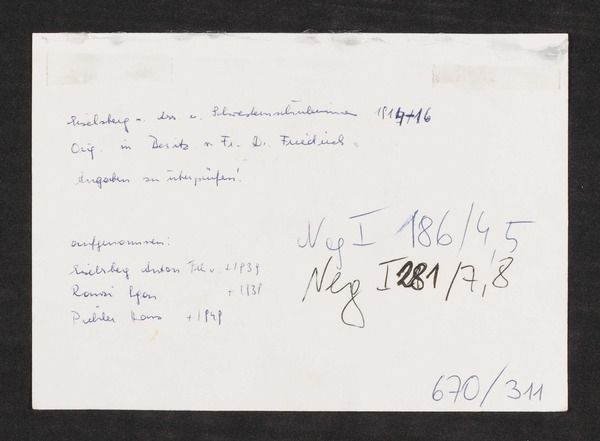 Eiselsberg u. Ass u. Schwesternschülerinnen 1914+16
Orig. in Besitz v. Fr. Dr. Friedrich.
Angaben zu überprüfen!
aufgenommen:
Eiselsberg Anton Frh v. +1939
Ranzi Egon +1939
Pichler Hans +1949
Neg I 186/4,5
Neg I 281/7,8
670/311